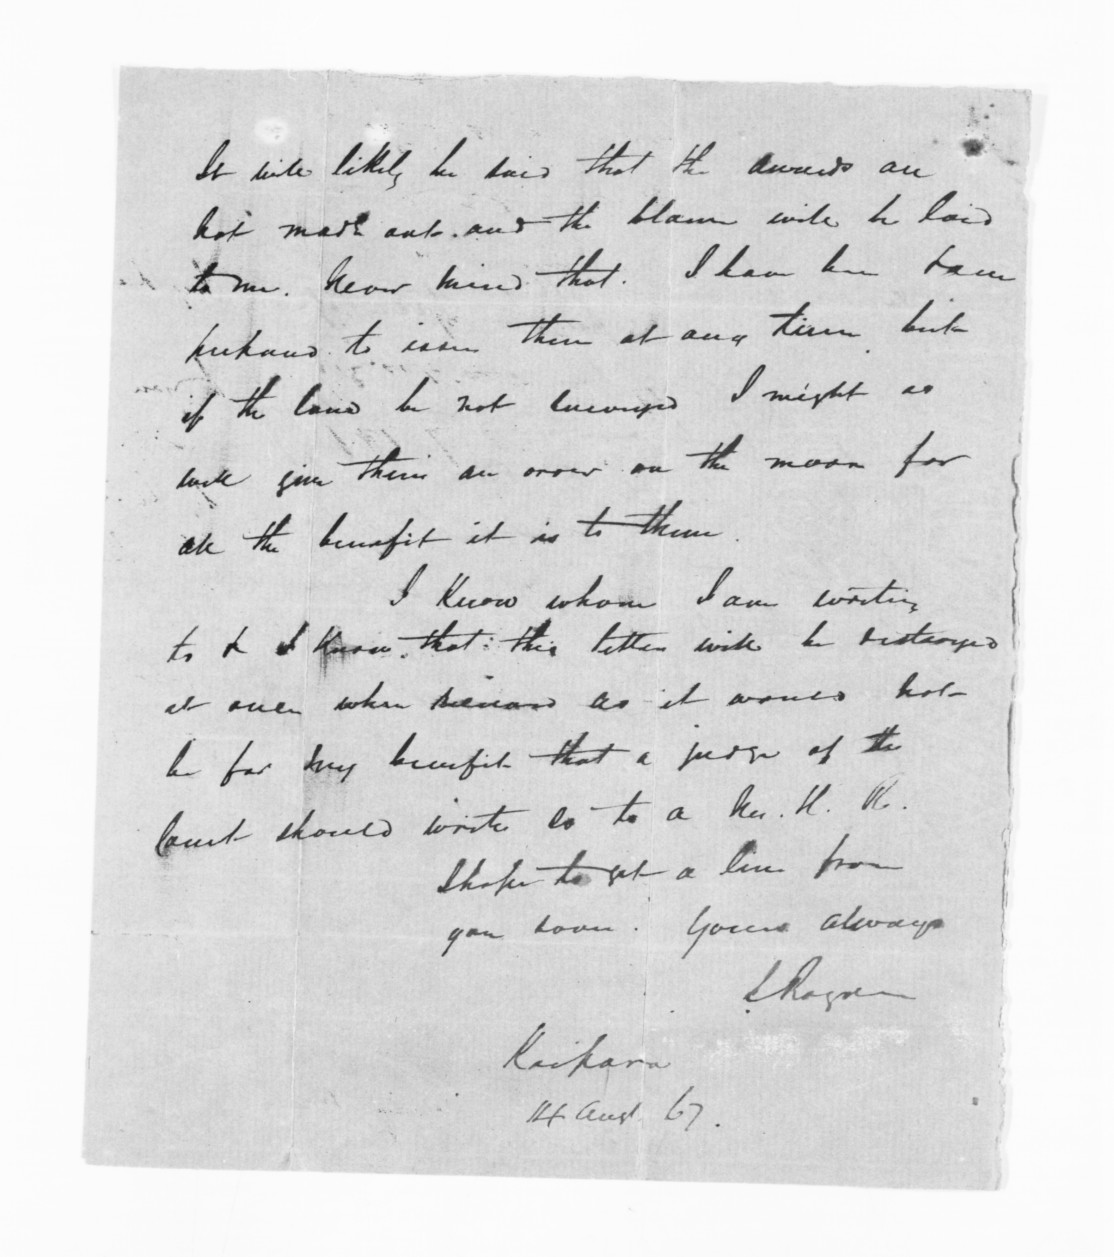 It will likely be said that the awards are
not made out and the blame will be laid
to me. Never mind that. I have been
prepared to issue them at any time but
if the land be not surveyed I might as
well give them an order on the moon for
all the benefit it is to them.
I know whom I am writing
to & I know that this letter will be destroyed
at once when received as it would not
be for my benefit that a judge of the
Court should write so to a M. H. R.
I hope to get a line from
you soon. Yours always
Rogan
Kaipara
14 Augt 67.